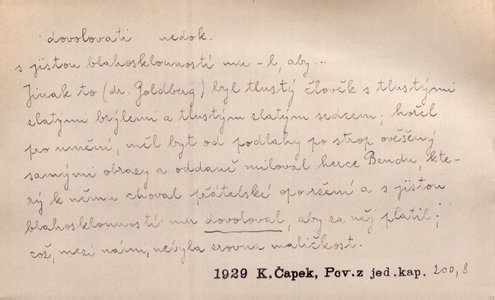 dovolovati nedok.
s jistou blahosklonností mu -l, aby...
Jinak to (dr. Goldberg) byl tlustý člověk s tlustými
zlatými brýlemi a tlustým zlatým srdcem; hořel
pro umění, měl byt od podlahy po strop ověšený
samými obrazy a oddaně miloval herce Bendu, kte-
rý k němu choval přátelské opovržení a s jistou
blahosklonností mu dovoloval, aby za něj platil;
což, mezi námi, nebyla zrovna maličkost.
1929 K.Čapek, Pov.z jed.kap. 200,8